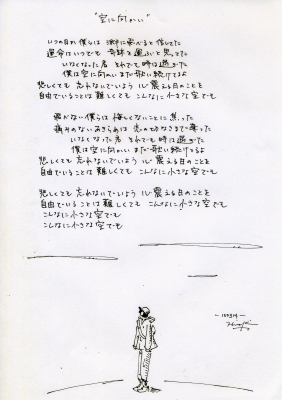 "空に向かい"
いつの日か僕らは 激しく燃えると信じてた
運命はいつでも 奇跡を運ぶと思ってた
いなくなった君 それでも時は過ぎた
僕は空に向かいまだ歌い続けてるよ
悲しくても 忘れないでいよう 心震える日のことを
自由でいることは 難しくても こんなに小さな空でも
僕らは 悔しくないことに 焦った
痛みのないあきらめは 恋のせつなさまで奪った
いなくなった君 それでも時は過ぎた
僕は空に向かい まだ歌い続けてるよ
悲しくても 忘れないでいよう 心 震える日のことを
自由でいることは 難しくても こんなに小さな空でも
悲しくても 忘れないでいよう 心 震える日のことを
自由でいることは 難しくても こんなに小さな空でも
こんなに小さな空でも
こんなに小さな空でも